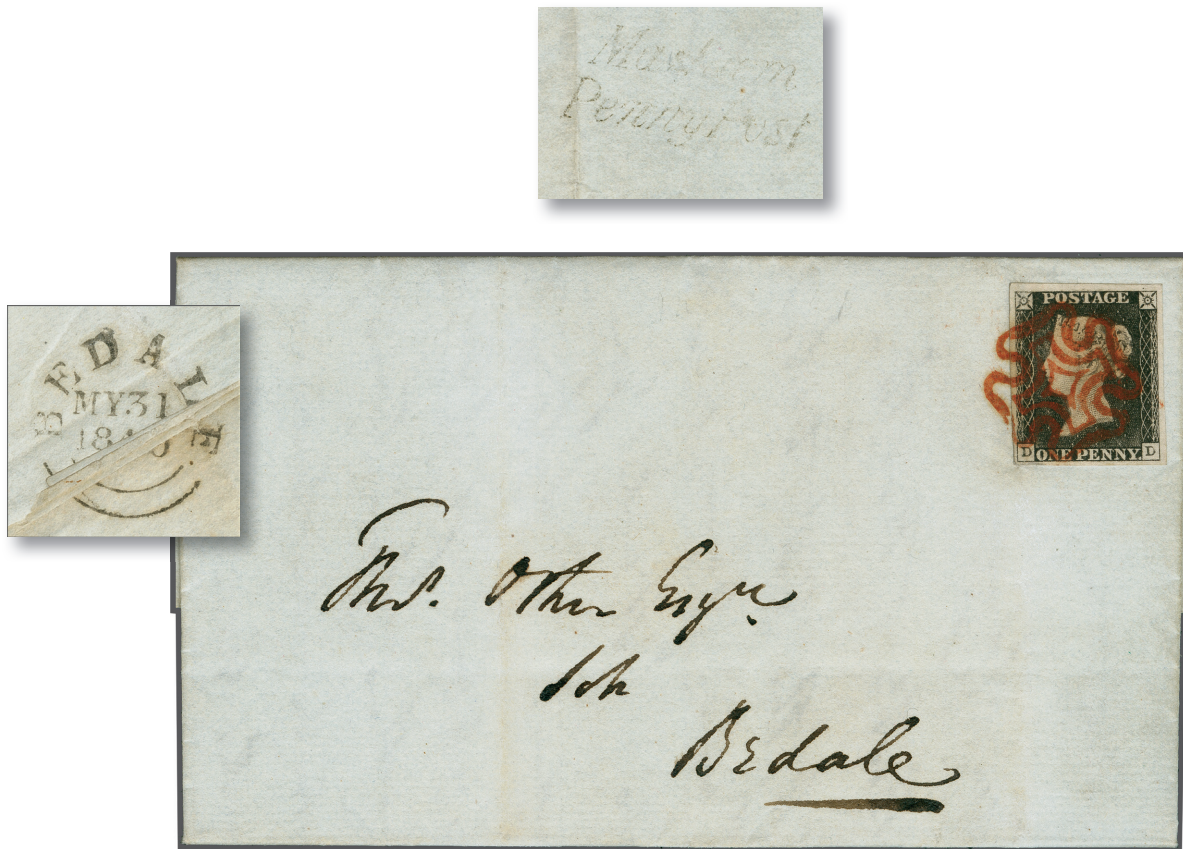 Masham
Penny Post
BEDALE
MY 31
1840
POSTAGE
D ONE PENNY. D
Thos. Other Esqre
Solr
Bedale